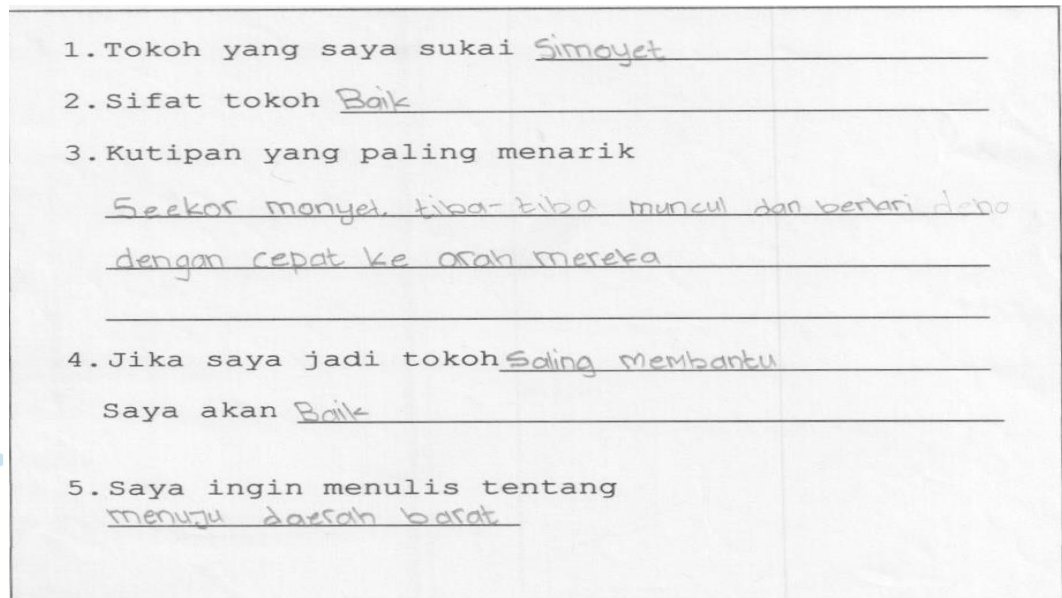 1. Tokoh yang saya sukai Simoyet
2. Sifat tokoh Baik
3. Kutipan yang paling menarik
Seekor monyet. tiba-tiba muncul dan berlari deng
dengan cepat ke arah mereka
4. Jika saya jadi tokoh Saling membantu
Saya akan Baik
5. Saya ingin menulis tentang
menuju daerah barat